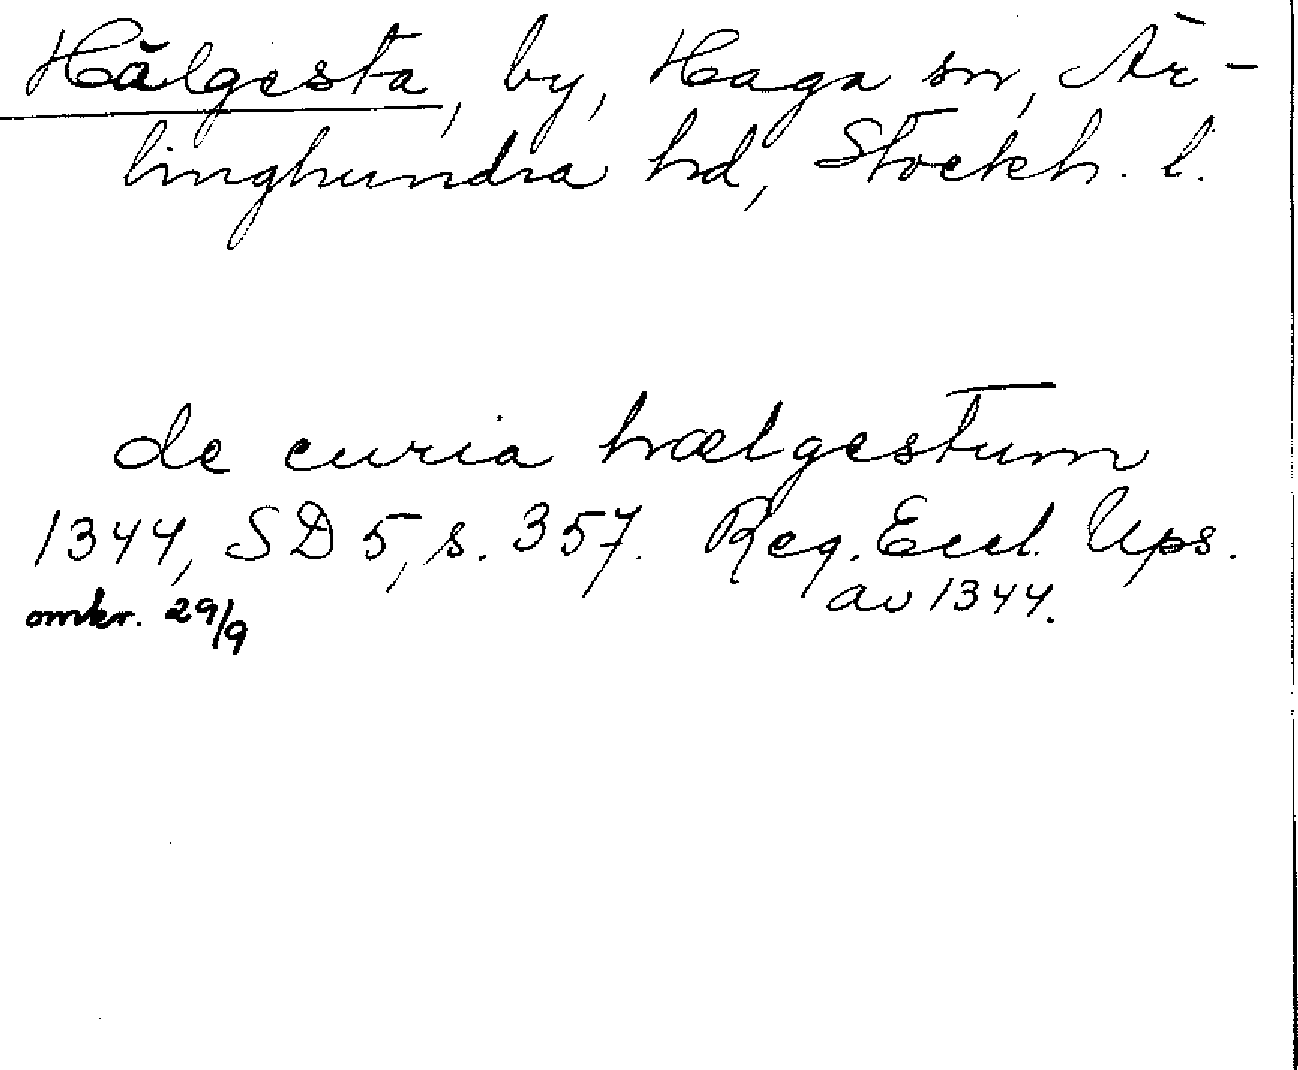 Hälgesta, by, Haga sn, Är-
linghundra hd, Stockh. l.
de curia hælgestum
1344, SD 5, s. 357. Reg. Eccl. Ups.
omkr. 29/9 av 1344.